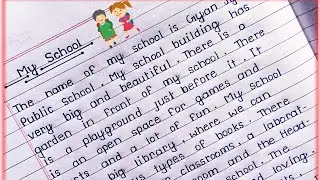 My School
The name of my school is Gyan
Public School. My school building has
very big and beautiful. There is a
garden in front of my school. There
is a playground just before it. It
is an open space for games and
and a lot of fun. My school
big library, where we can
types of books. There
classrooms, a laborat-
room and the Head-
loving.